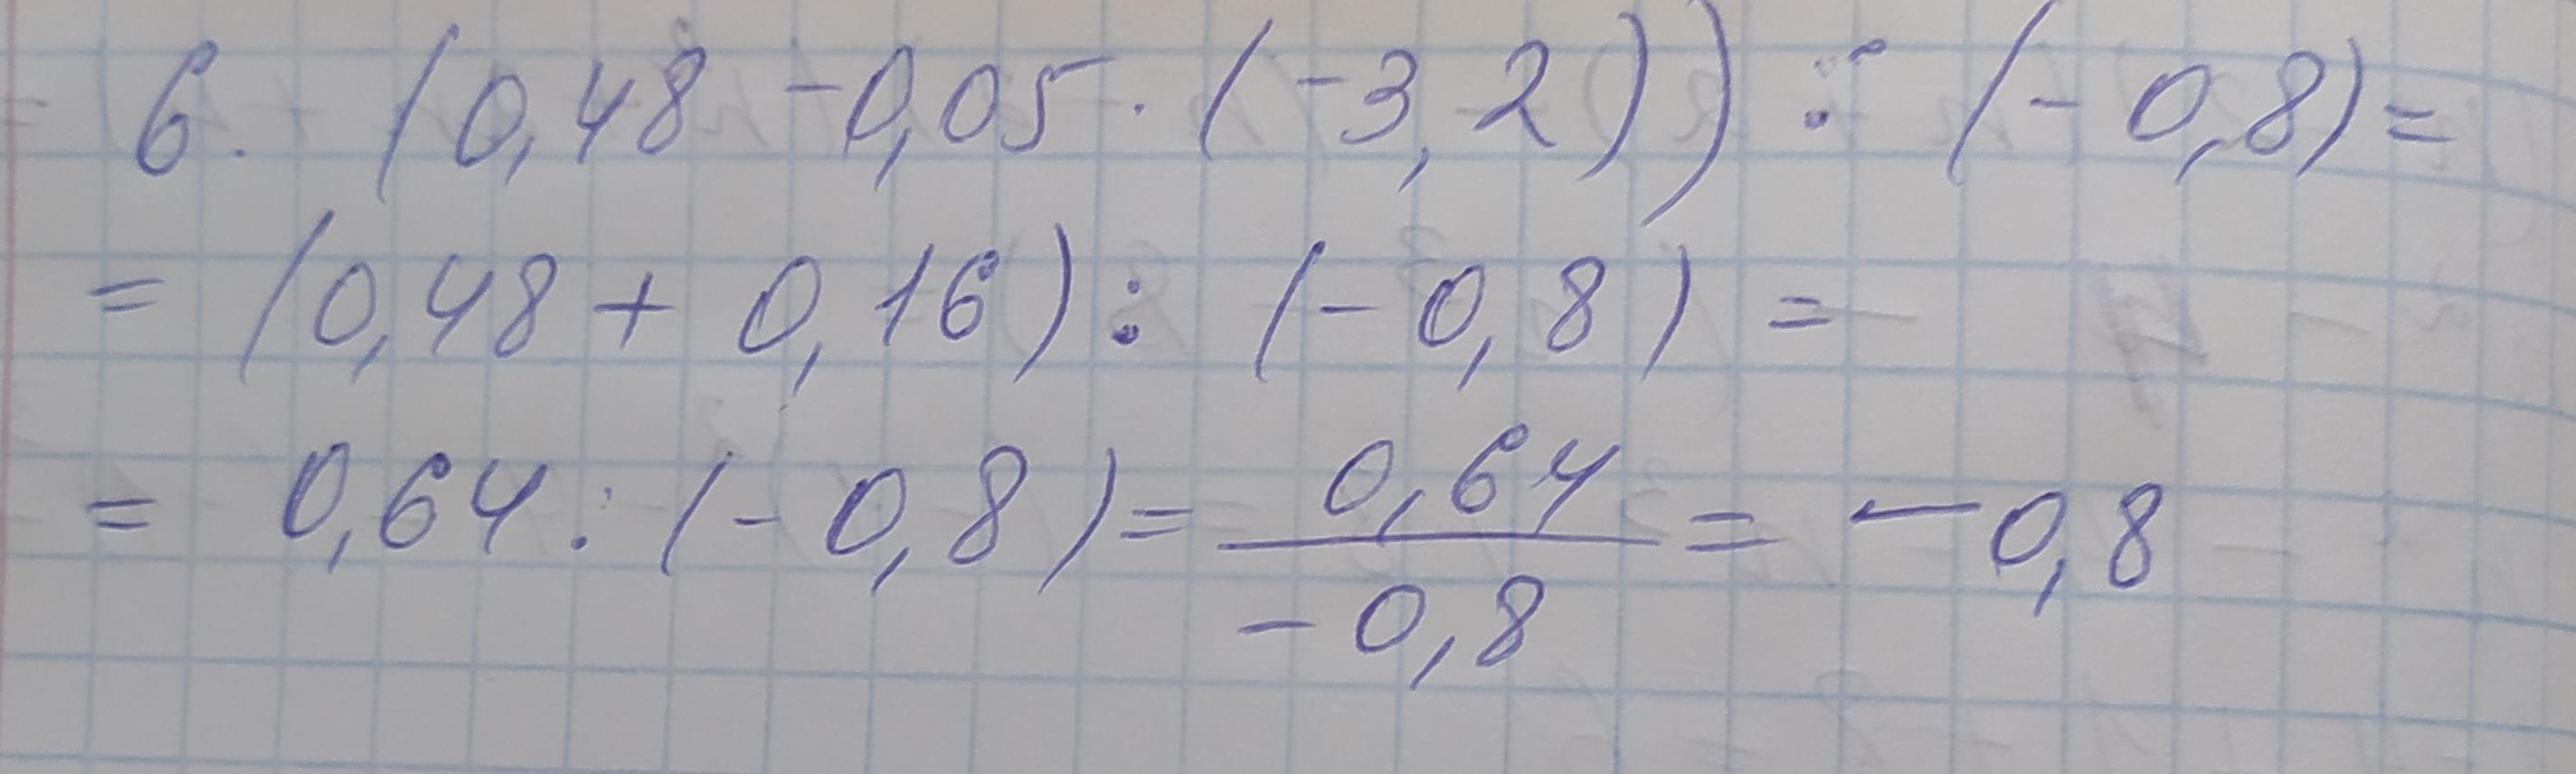 6. (0,48 - 0,05 · (-3,2)) : (-0,8) =
= (0,48 + 0,16) : (-0,8) =
= 0,64 : (-0,8) = \frac{0,64}{-0,8} = -0,8